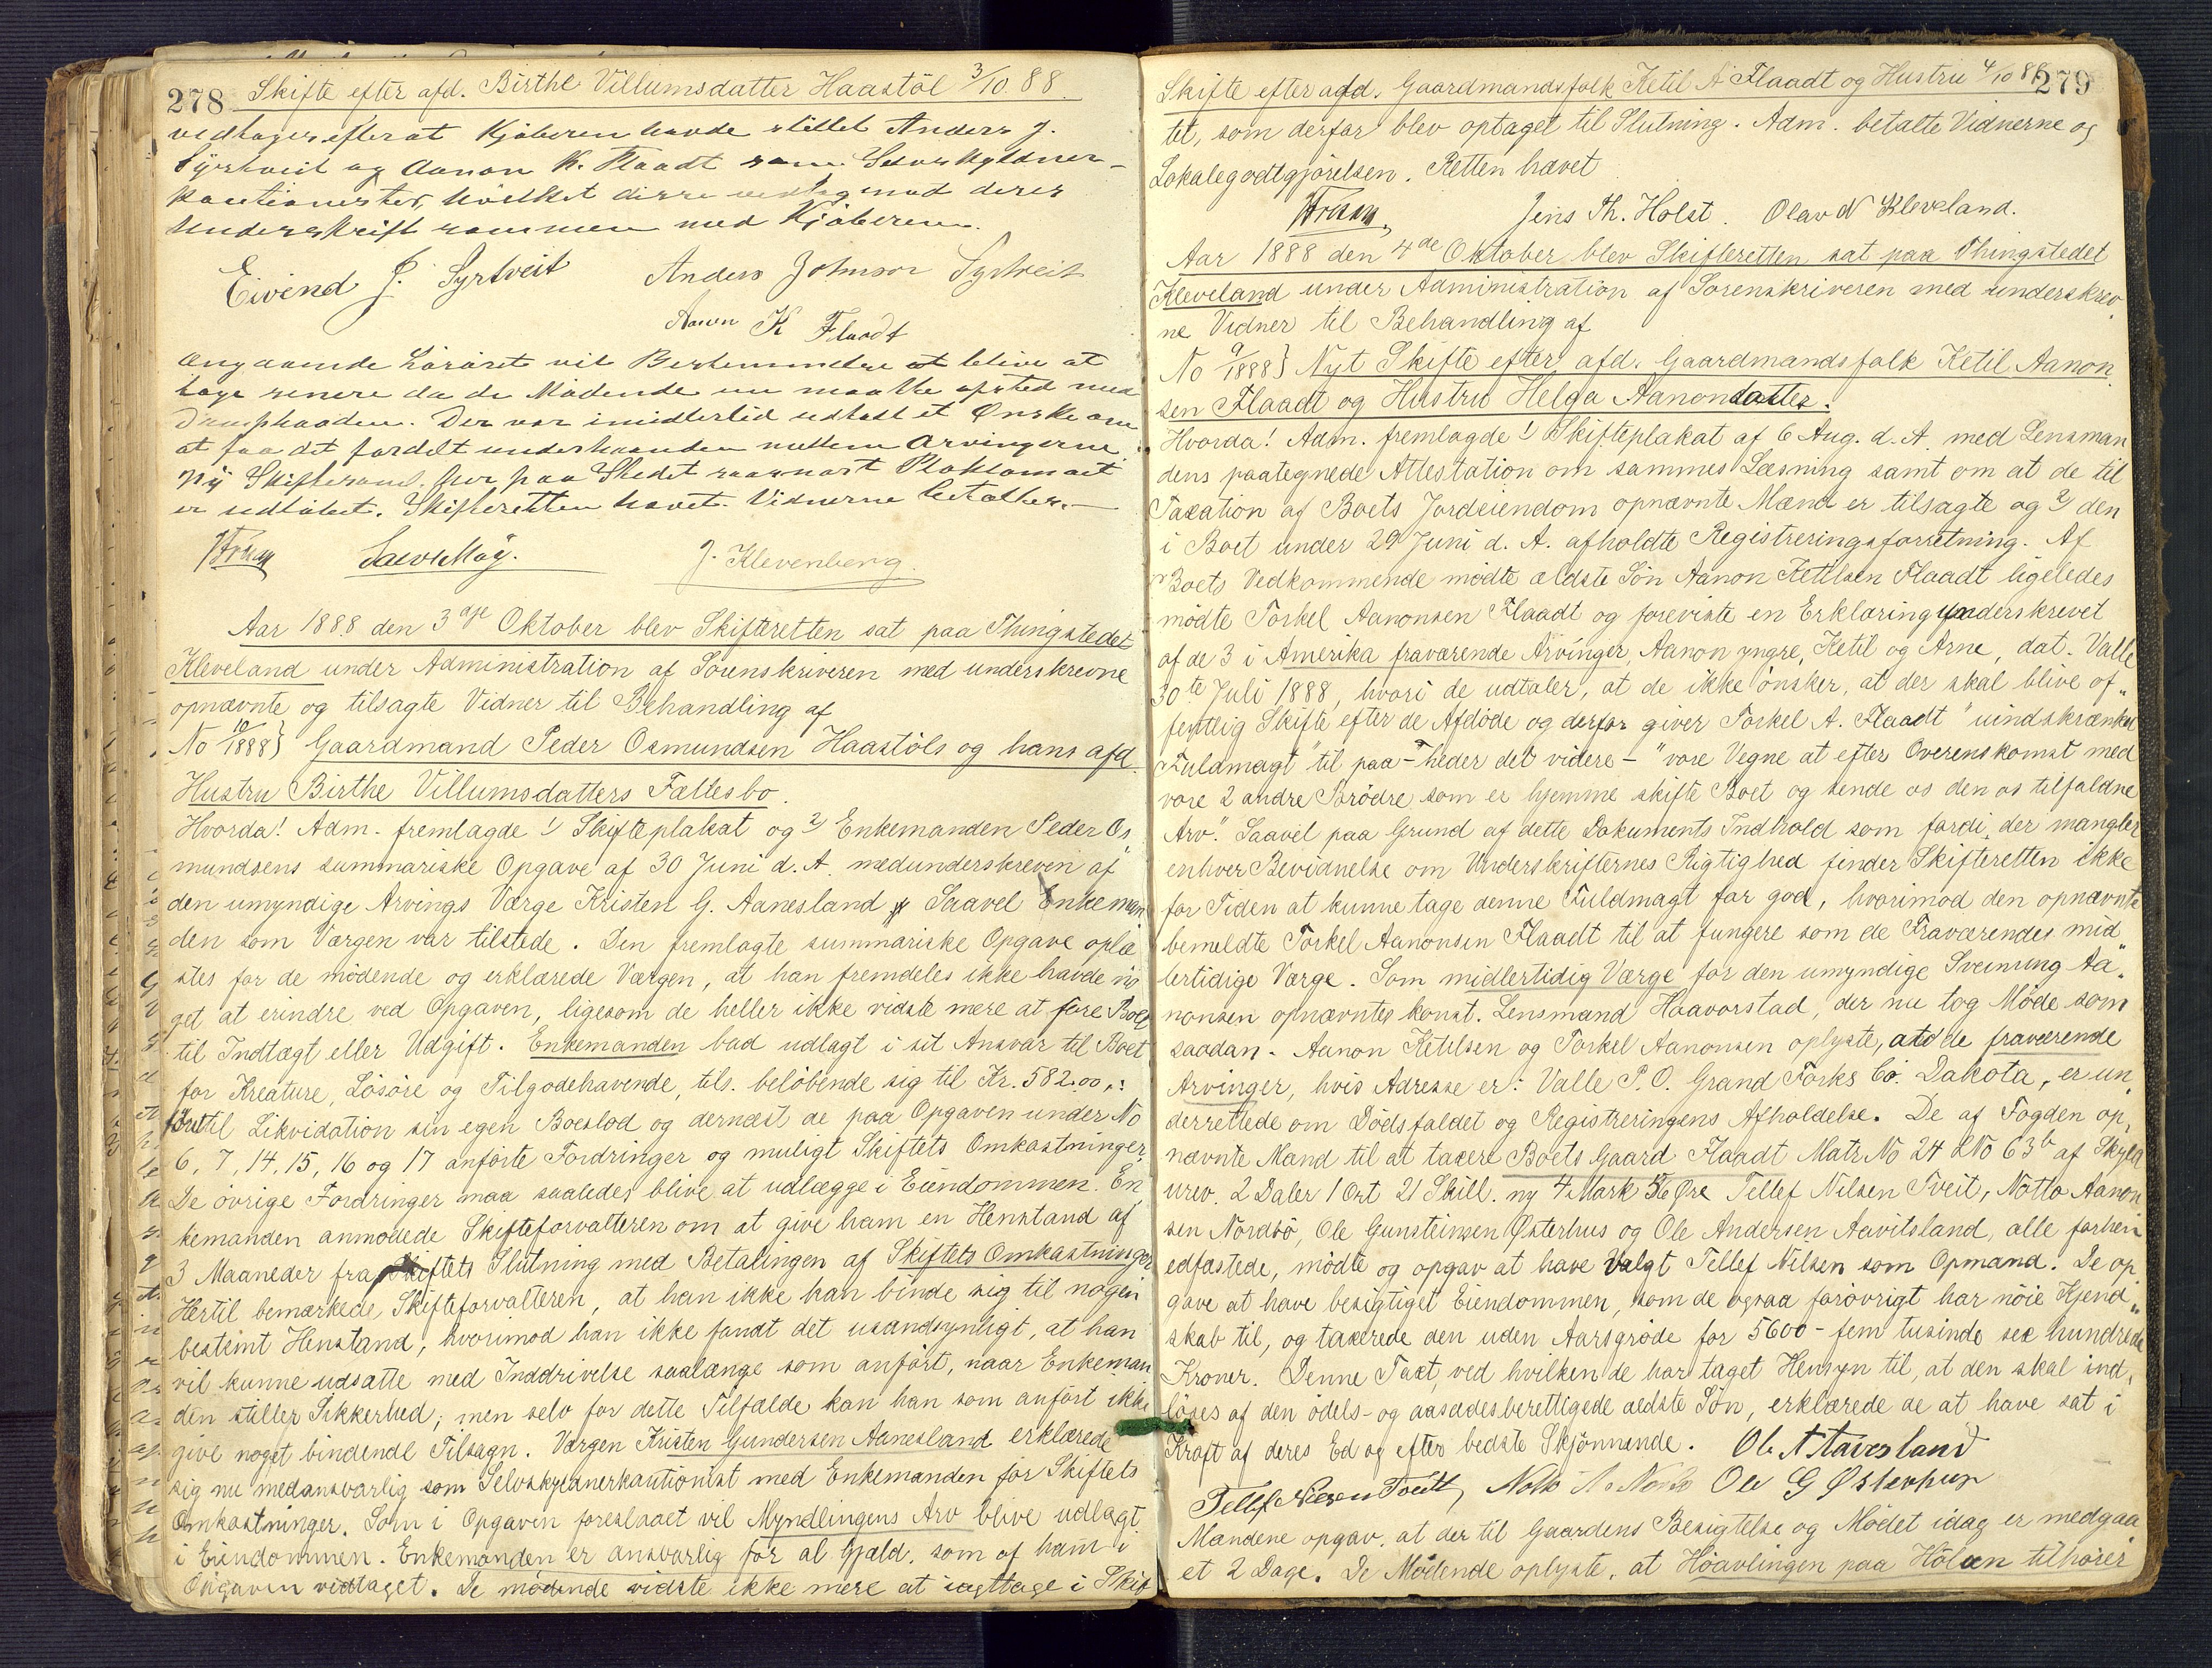 278 Skifte efter afd. Birthe Villumsdatter Haastöl 3/10 88.
vedtages efterat Kjöberen havde stillet Anders J.
Syrtveit og Aanon K. Flaadt som Selvskyldner-
kautionister, hvilket disse vedtog med deres
Underskrift sammen med Kjöberen.
Eivend J. Syrtveit Anders Johnsor Syrtveit
Aanon K Flaadt
Angaaende Lösöret vil Bestemmelse at blive at
tage senere da de Mödende nu maatte afsted med
Dampbaaden. Der var imidlertid udtalt et Ønske om
at faa det fordelt underhaanden mellem Arvingerne.
Ny Skiftesaml. her paa Stedet saasnart Proklamaet
er udlöbet. Skifteretten hævet. Vidnerne betaltes.-
J. Klevenberg.
Aar 1888 den 3die Oktober blev Skifteretten sat paa Thingstedet
Kleveland under Administration af Sorenskriveren med underskrevne
opnævnte og tilsagte Vidner til Behandling af
No 10/1888} Gaardmand Peder Osmundsen Haastöls og hans afd.
Hustru Birthe Villumsdatters Fællesbo.
Hvorda! Adm. fremlagde 1) Skifteplakat og 2) Enkemanden Peder Os,
mundsens summariske Opgave af 30 Juni d. A. medunderskreven af
den umyndige Arvings Værge Kristen G. Aanesland Saavel Enkeman
den som Værgen var tilstede. Den fremlagte summariske Opgave oplæ
stes for de mödende og erklærede Værgen, at han fremdeles ikke havde no
get at erindre ved Opgaven, ligesom de heller ikke vidste mere at före Boet
til Indtægt eller Udgift. Enkemanden bad udlagt i sit Ansvar til Boet
for Kreature, Lösöre og Tilgodehavende, tils. belöbende sig til Kr. 582.00,:
först til Likvidation sin egen Boeslod og dernæst de paa Opgaven under No
6, 7, 14, 15, 16 og 17 anförte Fordringer og muligt Skiftets Omkostninger.
De övrige Fordringer maa saaledes blive at udlægge i Eiendommen. En
kemanden anmodede Skifteforvalteren om at give ham en Henstand af
3 Maaneder fra Skiftets Slutning med Betalingen af Skiftets Omkostninger
Hertil bemærkede Skifteforvalteren, at han ikke kan binde sig til nogen
bestemt Henstand, hvorimod han ikke fandt det usandsynligt, at han
vil kunne udsætte med Inddrivelse saalænge som anfört, naar Enkeman
den stiller Sikkerhed; men selv for dette Tilfælde kan han som anfört ikke
give noget bindende Tilsagn. Værgen Kristen Gundersen Aanesland erklærede
sig nu medansvarlig som Selvskyldnerkautionist med Enkemanden for Skiftets
Omkostninger. Som i Opgaven foreslaaet vil Myndlingens Arv blive udlagt
i Eiendommen. Enkemanden er ansvarlig for al Gjæld, som af ham i
Opgaven vidtaget. De mödende vidste ikke mere at iagttage i Skif
Skifte efter afd. Gaardmandsfolk Ketil A Flaadt og Hustru 4/10 88 279
tet, som derfor blev optaget til Slutning. Adm. betalte Vidnerne og
Lokalegodtgjörelsen. Retten hævet
Jens Th. Holst. Olav N Kleveland.
Aar 1888 den 4de Oktober blev Skifteretten sat paa Thingstedet
Kleveland under Administration af Sorenskriveren med underskrev,
ne Vidner til Behandling af
No 9/1888} Nyt Skifte efter afd. Gaardmandsfolk Ketil Aanon
sen Flaadt og Hustru Helga Aanondatter.
Hvorda! Adm. fremlagde 1) Skifteplakat af 6 Aug. d. A. med Lensman
dens paategnede Attestation om sammes Læsning samt om at de til
Taxation af Boets Jordeiendom opnævnte Mænd er tilsagte og 2) den
i Boet under 29 Juni d. A. afholdte Registreringsforretning. Af
Boets Vedkommende mödte ældste Sön Aanon Ketilsen Flaadt ligeledes
mödte Torkel Aanonsen Flaadt og foreviste en Erklæring underskrevet
af de 3 i Amerika fraværende Arvinger, Aanon yngre, Ketil og Arne, dat. Valle
30te Juli 1888, hvori de udtaler, at de ikke önsker, at der skal blive of„
fentlig Skifte efter de Afdöde og derfor giver Torkel A. Flaadt "uindskrænket
Fuldmagt" til paa - heder det videre - "vore Vegne at efter Overenskomst med
vore 2 andre Brödre som er hjemme skifte Boet og sende os den os tilfaldne
Arv." Saavel paa Grund af dette Dokuments Indhold som fordi der mangler
enhver Bevidnelse om Underskrifternes Rigtighed finder Skifteretten ikke
for Tiden at kunne tage denne Fuldmagt for god, hvorimod den opnævnte
bemeldte Torkel Aanonsen Flaadt til at fungere som de Fraværendes mid
lertidige Værge. Som midlertidig Værge for den umyndige Sveinung Aa„
nonsen opnævntes konst. Lensmand Haavorstad, der nu tog Møde som
saadan. Aanon Ketilsen og Torkel Aanonsen oplyste, at de fraværende
Arvinger, hvis Adresse er: Valle P. O. Grand Forks Co. Dakota, er un,
derrettede om Dödsfaldet og Registreringens Afholdelse. De af Fogden op,
nævnte Mænd til at taxere Boets Gaard Flaadt Matr No 24 LNo 63b af Skyld
urev. 2 Daler 1 Ort 21 Skill. ny 4 Mark 56 Øre Tellef Nilsen Tveit, Notto Aanon
sen Nordbö, Ole Gunsteinsen Østerhus og Ole Andersen Aavitsland, alle forhen
edfæstede, mödte og opgav at have valgt Tellef Nilsen som Opmand. De op
gave at have besigtiget Eiendommen, som de ogsaa forövrigt har nöie Kjend„
skab til, og taxerede den uden Aarsgröde for 5600 - fem tusinde sex hundrede
Kroner. Denne Taxt, ved hvilken de har taget Hensyn til, at den skal ind,
löses af den odels- og aasædesberettigede ældste Sön, erklærede de at have sat i
Kraft af deres Ed og efter bedste Skjönnende. Ole A
Tellef Nilsen Tveit, Ole G Østerhus
Mændene opgav, at der til Gaardens Besigtelse og Mödet idag er medgaa
et 2 Dage. De Mödende oplyste, at Höavlingen paa tilhörer